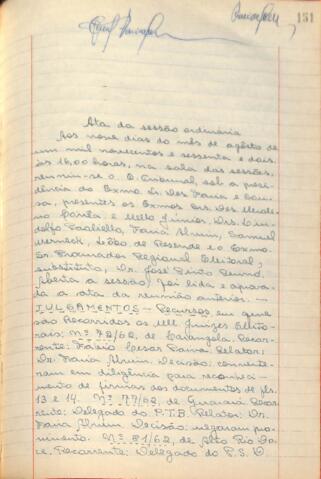 151
Ata da sessão ordinária
Aos nove dias do mês de agôsto de
um mil novecentos e sessenta e dois,
às 16,00 horas, na sala das sessões,
reuniu-se o E. Tribunal, sob a presi-
dência do Exmo. Sr. Des. Faria e Sou-
sa, presentes os Exmos. Srs. Des.
e Mello Júnior, Drs. Lin-
dolfo Paoliello, Faria Alvim, Samuel
Werneck, Leão de Resende e o Exmo.
Sr. Procurador Regional Eleitoral,
substituto, Dr. José Pinto
Aberta a sessão, foi lida e aprova-
da a ata da reunião anterior. —
JULGAMENTOS — Recursos, em que
são Recorridos os MM. Juizes Eleito-
rais: Nº 78/62, de Carangola. Recor-
rente: Cesar Relator:
Dr. Faria Alvim. Decisão: converte-
ram em diligência para reconheci-
mento de firmas dos documentos de fls.
13 e 14. Nº 77/62, de Recor-
rente: Delegado do P.T.B. Relator: Dr.
Faria Alvim. Decisão: negaram pro-
vimento. Nº 81/62, de Alto Rio Do-
ce. Recorrente: Delegado do P.S.D.